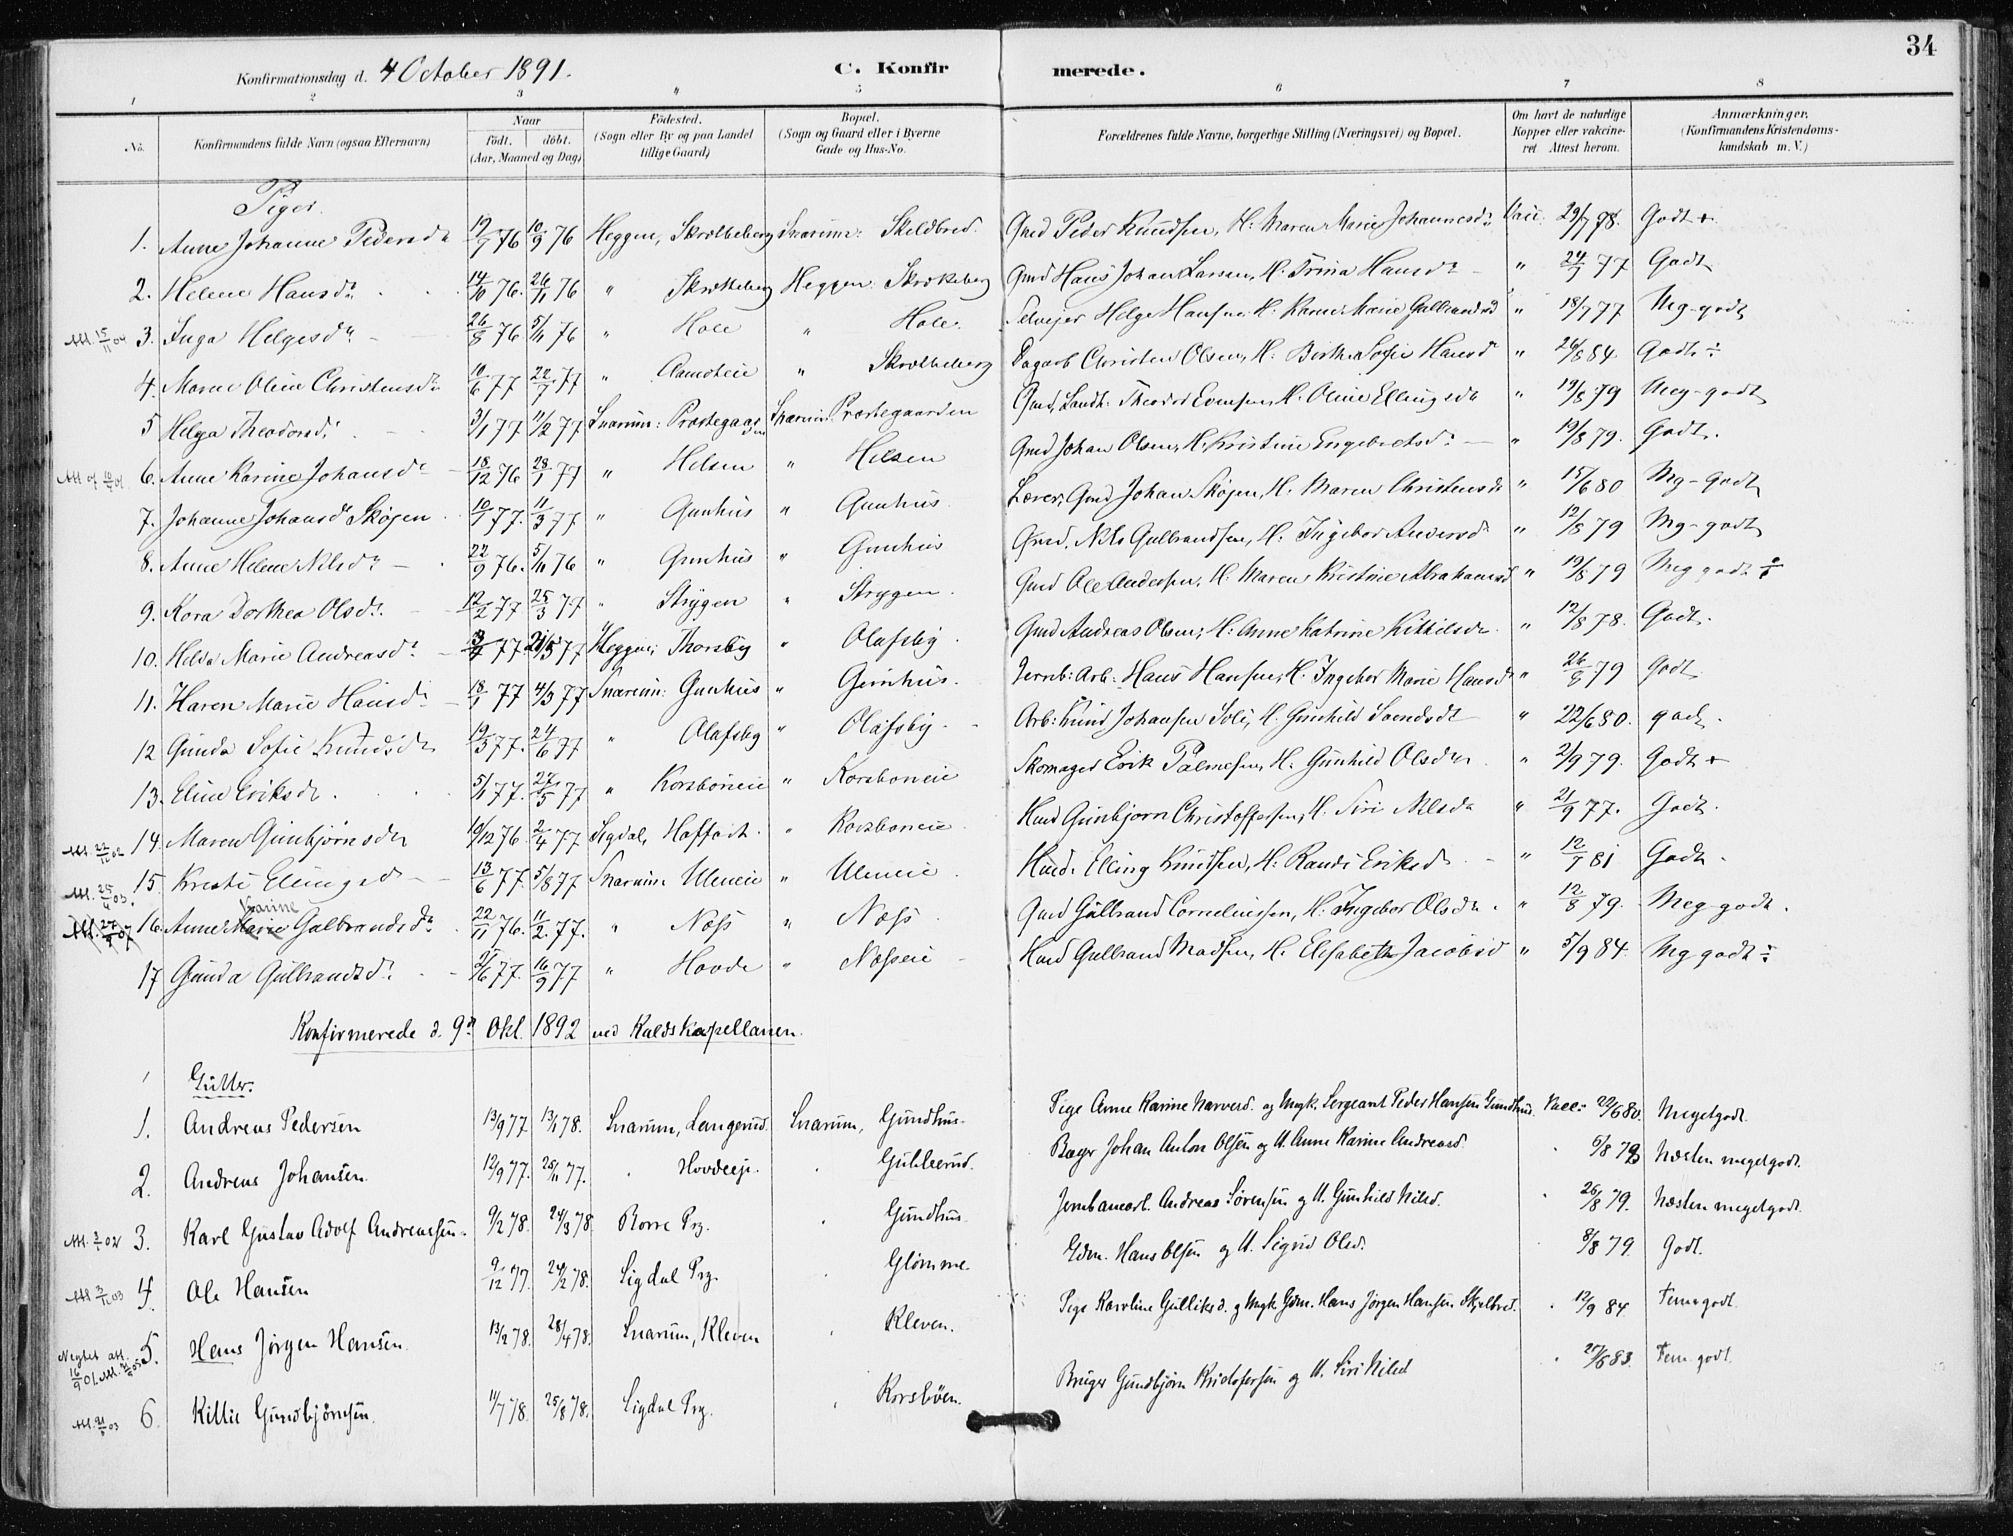 34
Konfirmationsdag d. 4 October 1891.
C. Konfirmerede.
1 2 3 4 5 6 7 8
No. Konfirmandens fulde Navn (ogsaa Efternavn) Naar født. døbt. (Aar, Maaned og Dag) Fødested. (Sogn eller By og paa Landet tillige Gaard) Bopæl. (Sogn og Gaard eller i Byerne Gade og Hus-No. Forældrenes fulde Navne, borgerlige Stilling (Næringsvei) og Bopæl. Om havt de naturlige Kopper eller vakcineret Attest herom. Anmærkninger. (Konfirmandens Kristendomskundskab m. V.)
Piger.
1. Anne Johanne Pedersdr 19/7 76 10/9 76 Heggen, Skrolleberg Snarum: Skeldbred. Gmd Peder Knudsen, H: Maren Marie Johannesdr Vacc. 29/7 78. Godt +
2. Helene Hansdr 14/10 76. 26/11 76 " Skrolleberg Heggen Gmd Hans Johan Larsen, H. Trina Hansdr " 24/7 77 Godt
Att. 15/11 04 3. Inga Helgesdr 26/8 76 5/11 76 " Hole " Hole. Selvejer Helge Hansen H. Karen Marie Gulbrandsd " 18/7 77 Mg-godt
4. Maren Oline Christensdr 10/6 77 22/7 77 " " Skrolleberg Dagarb Christen Olsen, H. Berthe Sofie Hansd " 26/8 84. Godt ÷
5 Helga Theodorsd. 3/1 77 11/2 77 Snarum: Præstegaarden Snarum: Præstegaarden Gmd, Landh: Theodor Evensen, H. Oline Ellingsdr " 19/8 79 Meg-godt
6. Anne Karine Johansdr 18/12 76 28/1 77 " Helsen " Helsen Gmd Johan Olsen, H. Kristine Engebretsdr " 19/8 79. Godt.
7. Johanne Johansd Skøjen 10/1 77. 11/3 77 " Gunhus " Gunhus. Lærer, Gmd Johan Skøjen, H. Maren Christensdr " 15/6 80 Mg-Godt
8. Anne Helene Nilsdr 22/9 76. 5/11 76 " Gunhus " Gunhus Gmd. Nils Gulbrandsen, H. Ingebor Andersd " 12/8 79 Mg-godt
9. Kora Dorthea Olsdr. 12/2 77 25/3 77 " Strygen " Strygen. Gmd Ole Andersen, H. Maren Kristine Abrahamsd " 19/8 79 Meg godt ÷
10. Hilda Marie Andreasdr 77 21/5 77 Heggen; Thorsby " Olafsby. Gmd Andreas Olsen, H: Anne Katrine Kittilsdr. " 12/8 78. Godt.
11. Karen Marie Hansdr 18/1 77 4/3 77 Snarum: Gunhus " Gunhus. Jernb: Arb: Hans Hansen, H. Ingebor Marie Hansd " 26/8 79 Godt
12 Gunda Sofie Knudsdr 19/3 77. 24/6 77 " Olafsby " Olafsby. Arb: Knud Johansen Soli, H. Gunhild Svendsdr " 22/6 80. godt.
13. Eline Eriksdr. 5/1 77. 27/5 77 " Korsboneie " Korsboneie Skomager Erik Palmesen, H: Gunhild Olsdr. " 2/9 79. Godt +
Att. 22/12 02 14. Maren Gunbjørnsdr 19/12 76. 2/4 77 Sigdal, " Korsboneie Hmd Gunbjorn Christoffersen, H. Siri Nilsdr " 21/9 77. Godt.
Att. 25/4 03. 15. Kristi Ellingsd 13/6 77. 5/8 77 Snarum: Uleneie " Uleneie. Hmd. Elling Knudsen, H: Randi Eriksd. " 12/7 81 Godt.
Att. 27/9 07 16. Anne Marie Karine Gulbrandsdr. 22/11 76. 11/2 77. " Næss " Næss. Gmd Gulbrand Corneliussen, H: Ingebor Olsdr. " 12/8 79. Meg-godt.
17 Gunda Gulbrandsdr. 77. 16/9 77 " Hovde " Næsseie Hmd Gulbrand Madsen, H. Elisabeth Jacobsd " 5/9 84. Mg-godt ÷
Konfirmerede d. 9de Okt. 1892 ved Kaldskapellanen.
Gutter.
1. Andreas Pedersen 13/9 77. 13/1 78. Snarum, Langerud. Snarum, Gundhus. Pige Anne Karine Narvesd. og Ungk. Sergeant Peder Hansen Gundhus. Vacc: 29/6 80. Megetgodt.
2. Andreas Johansen. 12/9 77. 25/11 77. Hovdeeje. Gulleerud. Bøger Johan Anton Olsen og H. Anne Karine Andreasd. 5/8 79 Næsten megetgodt.
Att. 3/1 02 3. Karl Gustav Adolf Andreassen. 9/2 78. 24/3 78. Borre Prg. Gundhus. Jernbanearb. Andreas Sørensen og H. Gunhild Nilsd. 26/8 79. Næsten megetgodt.
Att 3/12 03 4. Ole Hansen 9/12 77. 24/2 78. Sigdal Prg. Glomme. Gdm. Hans Olsen og H. Sigrid Olsd. 8/8 79. Godt.
Negtet att. 16/9 01. 5. Hans Jørgen Hansen. 13/2 78. 28/4 78. Snarum, Kleven Kleven. Pige Karoline Gulliksd. og Ungk. Gdm. Hans Jørgen Hansen Skjelbred. 12/9 84 Temgodt.
Att. 21/8 03 6. Kittil Gundbjørnsen. 11/7 78. 25/8 78. Sigdal Prg. Korsbøen. Bruger Gundbjørn Kristofersen og H. Siri Nilsd 27/8 83. Tem. godt.